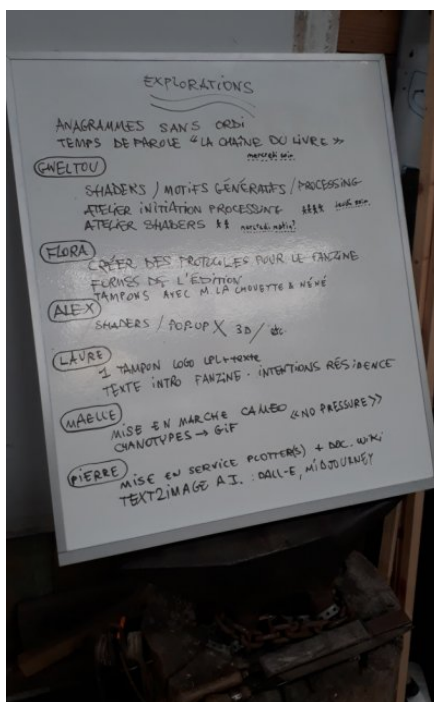 EXPLORATIONS
ANAGRAMMES SANS ORDI
TEMPS DE PAROLE "LA CHAÎNE DU LIVRE"
mercredi soir
GWELTOU
SHADERS / MOTIFS GÉNÉRATIFS / PROCESSING
ATELIER INITIATION PROCESSING **** jeudi soir
ATELIER SHADERS ** mercredi matin!
FLORA
CRÉER DES PROTOCOLES POUR LE FANZINE
FORMES DE L'ÉDITION
TAMPONS AVEC M LA CHOUETTE & NÉNÉ
ALEX
SHADERS / POP-UP X 3D / etc
LAURE
1 TAMPON LOGO LPL + texte
TEXTE INTRO FANZINE · INTENTIONS RÉSIDENCE
MAELLE
MISE EN MARCHE CAMEO «NO PRESSURE»
CYANOTYPES → GIF
PIERRE
MISE EN SERVICE PLOTTER(S) + DOC. WIKI
TEXT2IMAGE A.I. : DALL-E, MIDJOURNEY